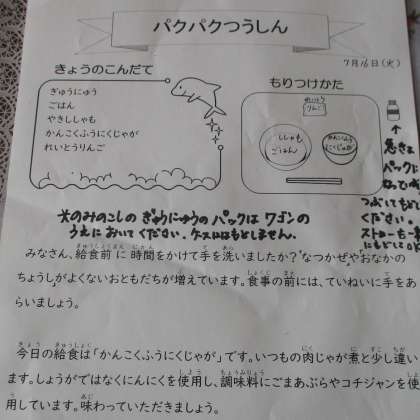 パクパクつうしん
7月16日(火)
きょうのこんだて
ぎゅうにゅう
ごはん
やきししゃも
かんこくふうにくじゃが
れいとうりんご
もりつけかた
れいとう
りんご
ししゃも
ごはん
かんこくふう
にくじゃが
パックに
ください。
ストローも
にもどし
大のみのこしの ぎゅうにゅうのパックは ワゴンの
うえにおいてください。ケースにはもどしません。
みなさん、給食前に時間をかけて手を洗いましたか?“なつかぜ”や“おなかの
ちょうし”がよくないおともだちが増えています。食事の前には、ていねいに手をあ
らいましょう。
今日の給食は「かんこくふうにくじゃが」です。いつもの肉じゃが煮と少し違い
ます。しょうがではなくにんにくを使用し、調味料にごまあぶらやコチジャンを使
用しています。味わっていただきましょう。